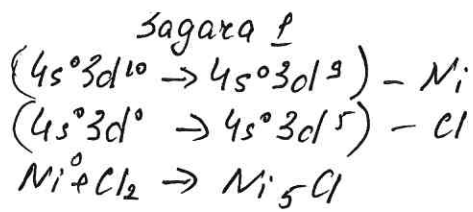 Задача 1
(4s⁰3d¹⁰ → 4s⁰3d⁹) – Ni
(4s⁰3d⁰ → 4s⁰3d⁵) – Cl
Ni⁰ + Cl₂ → Ni₅Cl